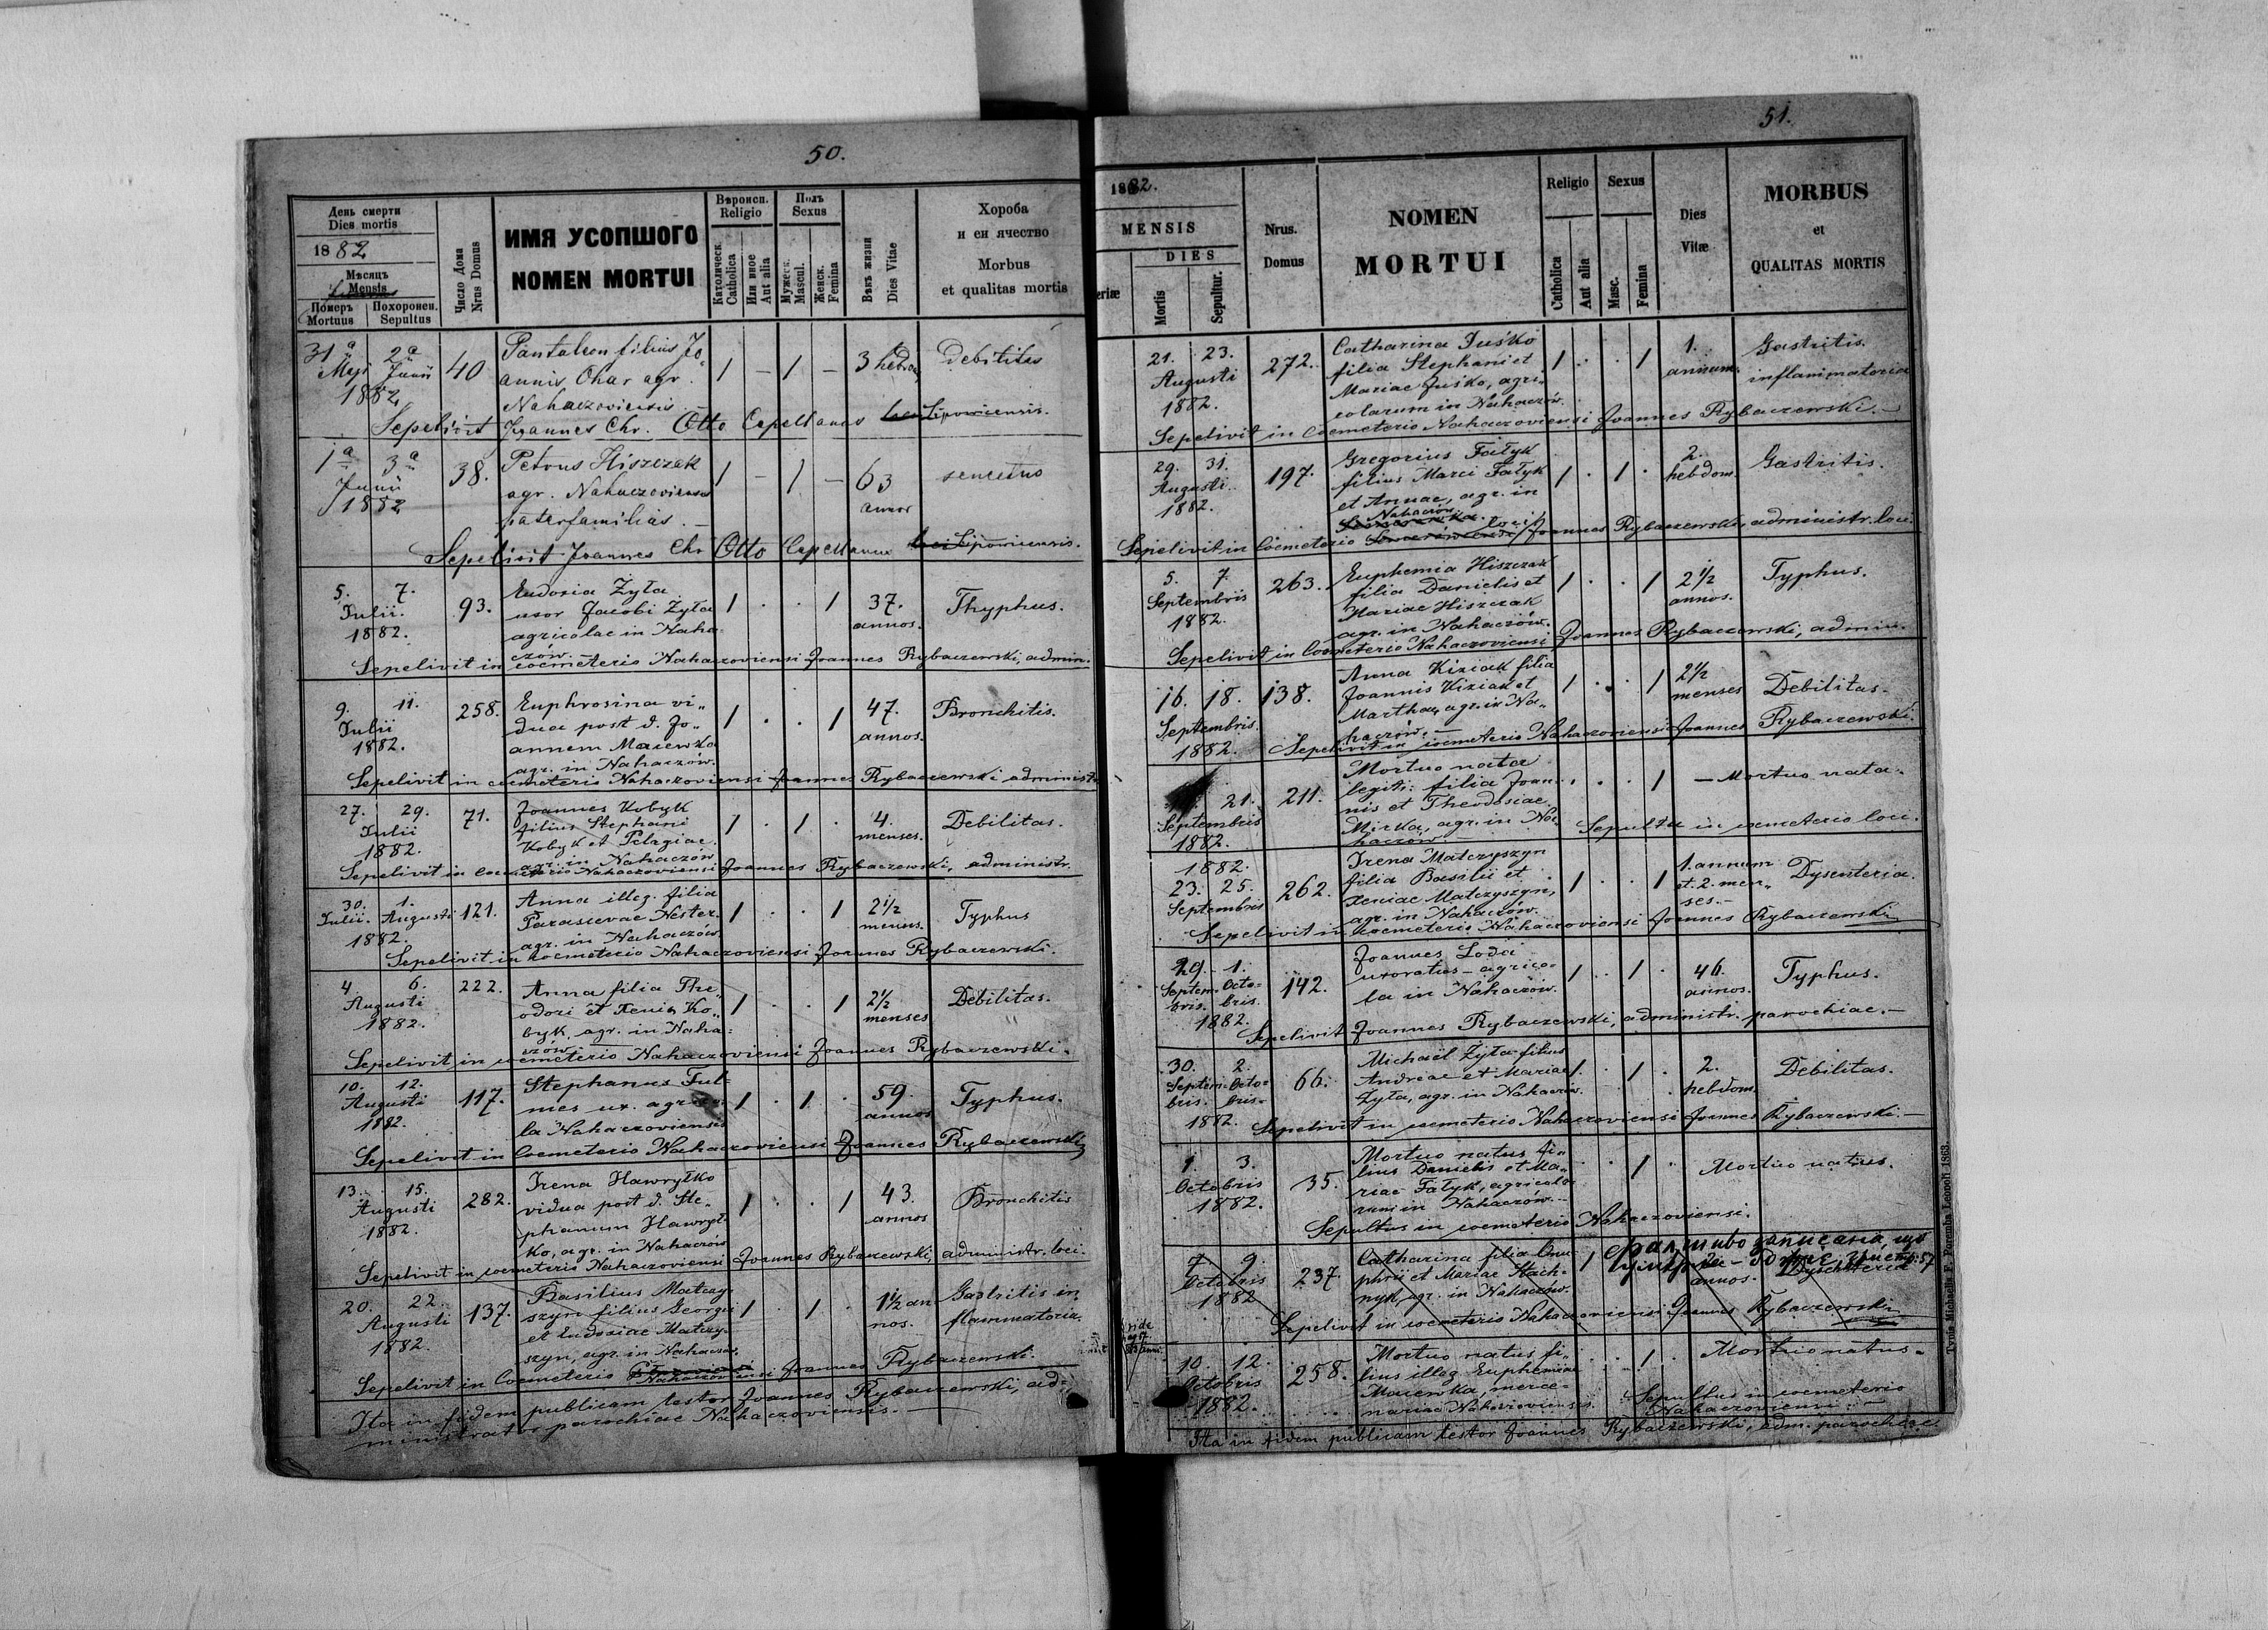 50.
День смерти
Dies mortis
1882
Мѣсяць
Mensis
Померъ
Mortuus
Похоронен.
Sepultus
Число Дома
Nrus Domus
ИМЯ УСОПШОГО
NOMEN MORTUI
Вѣроисп.
Religio
Католическ.
Catholica
Или иное
Aut alia
Полъ
Sexus
Мужеск.
Mascul.
Женск.
Femina
Вѣкъ жизни
Dies Vitae
Хороба
и еи ячество
Morbus
et qualitas mortis
31a Maji 2a Junii 1882 40 Pantaleon filius Jo„
annis Ohar agr.
Nahaczoviensis.—
1 – 1 – 3 hebdom Debilitas
Sepelivit Joannes Chr. Otto Capellanus Lipoviensis.
1a 3a Junii 1882 38. Petrus Hiszczak
agr. Nahaczoviensis
paterfamilias.—
1 – 1 – 63 annos senectus
Sepelivit Joannes Chr Otto Capellanus Lipoviensis.
5. 7. Julii. 1882. 93. Eudosia Żyła
uxor Jacobi Żyła
agricolae in Naha-
czów.
1 . . 1 37. annos. Thyphus.
Sepelivit in coemeterio Nahaczoviensi Joannes Rybaczewski, admin.
9. 11. Julii 1882. 258. Euphrosina vi„
dua post d. Jo„
annem Maiewka
agr. in Nahaczów.
1 . . 1 47. annos. Bronchitis.
Sepelivit in coemeterio Nahaczoviensi Joannes Rybaczewski administr.
27. 29. Julii 1882. 71. Joannes Kobyk
filius Stephani
Kobyk et Pelagiae.
agr. in Nahaczów
1 . 1 . 4. menses. Debilitas.
Sepelivit in coemeterio Nahaczoviensi Joannes Rybaczewski, administr.
30. Julii. 1. Augusti 1882. 121. Anna illeg. filia
Parascevae Nester.
agr. in Nahaczów.
1 . . 1 2½ menses. Typhus
Sepelivit in Coemeterio Nahaczoviensi Joannes Rybaczewski.
4. 6. Augusti 1882. 222. Anna filia The„
odori et Xenia Ko„
byk, agr. in Naha=
czów.
1 . . 1 2½ menses Debilitas.
Sepelivit in coemeterio Nahaczoviensi Joannes Rybaczewski.
10. 12. Augusti 1882. 117. Stephanus Ful=
mes ux. agrico-
la Nahaczoviensis
1 . 1 . 59. annos Typhus.
Sepelivit in Coemeterio Nahaczoviensi Joannes Rybaczewski
13. 15. Augusti 1882. 282. Irena Hawryłko
vidua post d. Ste„
phanum Hawrył-
ko, agr. in Nahaczów
1 . . 1 43. annos Bronchitis
Sepelivit in coemeterio Nahaczoviensi Joannes Rybaczewski, administr. loci.
20. 22. Augusti 1882. 137. Basilius Matczy-
szyn filius Georgii
et Eudosiae Matczy-
szyn, agr. in Nahaczów.
1 . 1 . 1½ an nos. Gastritis in
flammatoria.
Sepelivit in Coemeterio Nahaczoviensi Joannes Rybaczewski.
Ita in fidem publicam testor Joannes Rybaczewski, ad-
ministrator parochiae Nahaczoviensis.—
51.
1882.
MENSIS
DIES
Mortis
Sepultur.
Nrus.
Domus
NOMEN
MORTUI
Religio
Catholica
Aut alia
Sexus
Masc.
Femina
Dies
Vitæ
MORBUS
et
QUALITAS MORTIS
21. 23. Augusti 1882. 272. Catharina Juśko
filia Stephani et
Mariae Juśko, agri„
colarum in Nahaczów.
1 . . 1 1. annum. Gastritis.
inflammatoria
Sepelivit in Coemeterio Nahaczoviensi Joannes Rybaczewski.—
29. 31. Augusti. 1882. 197. Gregorius Fałyk
filius Marci Fałyk
et Annae, agr. in
Nahaczów.
1 . 1 . 2. hebdom. Gastritis.
Sepelivit in Coemeterio loci Joannes Rybaczewski, administr. loci.
5. 7. Septembris 1882. 263. Euphemia Hiszczak
filia Danielis et
Mariae Hiszczak
agr. in Nahaczów.
1 . . 1 2½ annos. Typhus.
Sepelivit in Coemeterio Nahaczoviensi Joannes Rybaczewski, admin.
16. 18. Septembris. 1882. 138. Anna Kiziak filia
Joannis Kiziak et
Martha, agr. in Na„
haczów.—
1 . . 1 2½ menses Debilitas.
Sepelivit in coemeterio Nahaczoviensi Joannes Rybaczewski.
21. Septembris 1882. 211. Mortuo nata
legit: filia Joan-
nis et Theodosiae
Mirka, agr. in Na-
haczów.
. . . 1 — Mortuo nata.
Sepulta in coemeterio loci.
1882. 23. 25. Septembris 262. Irena Matczyszyn
filia Basilii et
Xeniae Matczyszyn,
agr. in Nahaczów.
1 . . 1 1. annum
et 2. men„
ses.—
Dysenteria.
Sepelivit in coemeterio Nahaczoviensi Joannes Rybaczewski
29. Septem-bris. 1. Octo-bris. 1882. 142. Joannes Łodii
uxoratus – agrico-
la in Nahaczów.
1 . 1 . 46. annos. Typhus.
Sepelivit Joannes Rybaczewski, administr. parochiae.—
30. Septem-bris. 2. Octo-bris 1882. 66. Michaël Żyła filius
Andreae et Mariae
Żyła, agr. in Nahaczów.
1 . 1 . 2. hebdom. Debilitas.
Sepelivit in coemeterio Nahaczoviensi Joannes Rybaczewski.—
1. 3. Octobris 1882. 35. Mortuo natus fi„
lius Danielis et Ma„
riae Fałyk, agricola
rum in Nahaczów.—
. . 1 . Mortuo natus.
Sepultus in coemeterio Nahaczoviensi.
7 9. Octobris 1882 237. Catharina filia Onu-
phrii et Mariae Stach-
nyk, agr. in Nahaczów.
1 annos. Dysenteria
фалшиво записана, що
Sepelivit in coemeterio Nahaczoviensi Joannes Rybaczewski
vide
10. 12. Octobris 1882. 258. Mortuo natus fi„
lius illeg. Euphemiae
Maiewka, merce-
nariae Nahaczoviensis.
. . 1 . Mortuo natus.
Sepultus in coemeterio
Nahaczoviensi.—
Ita in fidem publicam testor Joannes Rybaczewski, adm. parochiae.
Typis Michaelis F. Poremba Leopoli 1863.